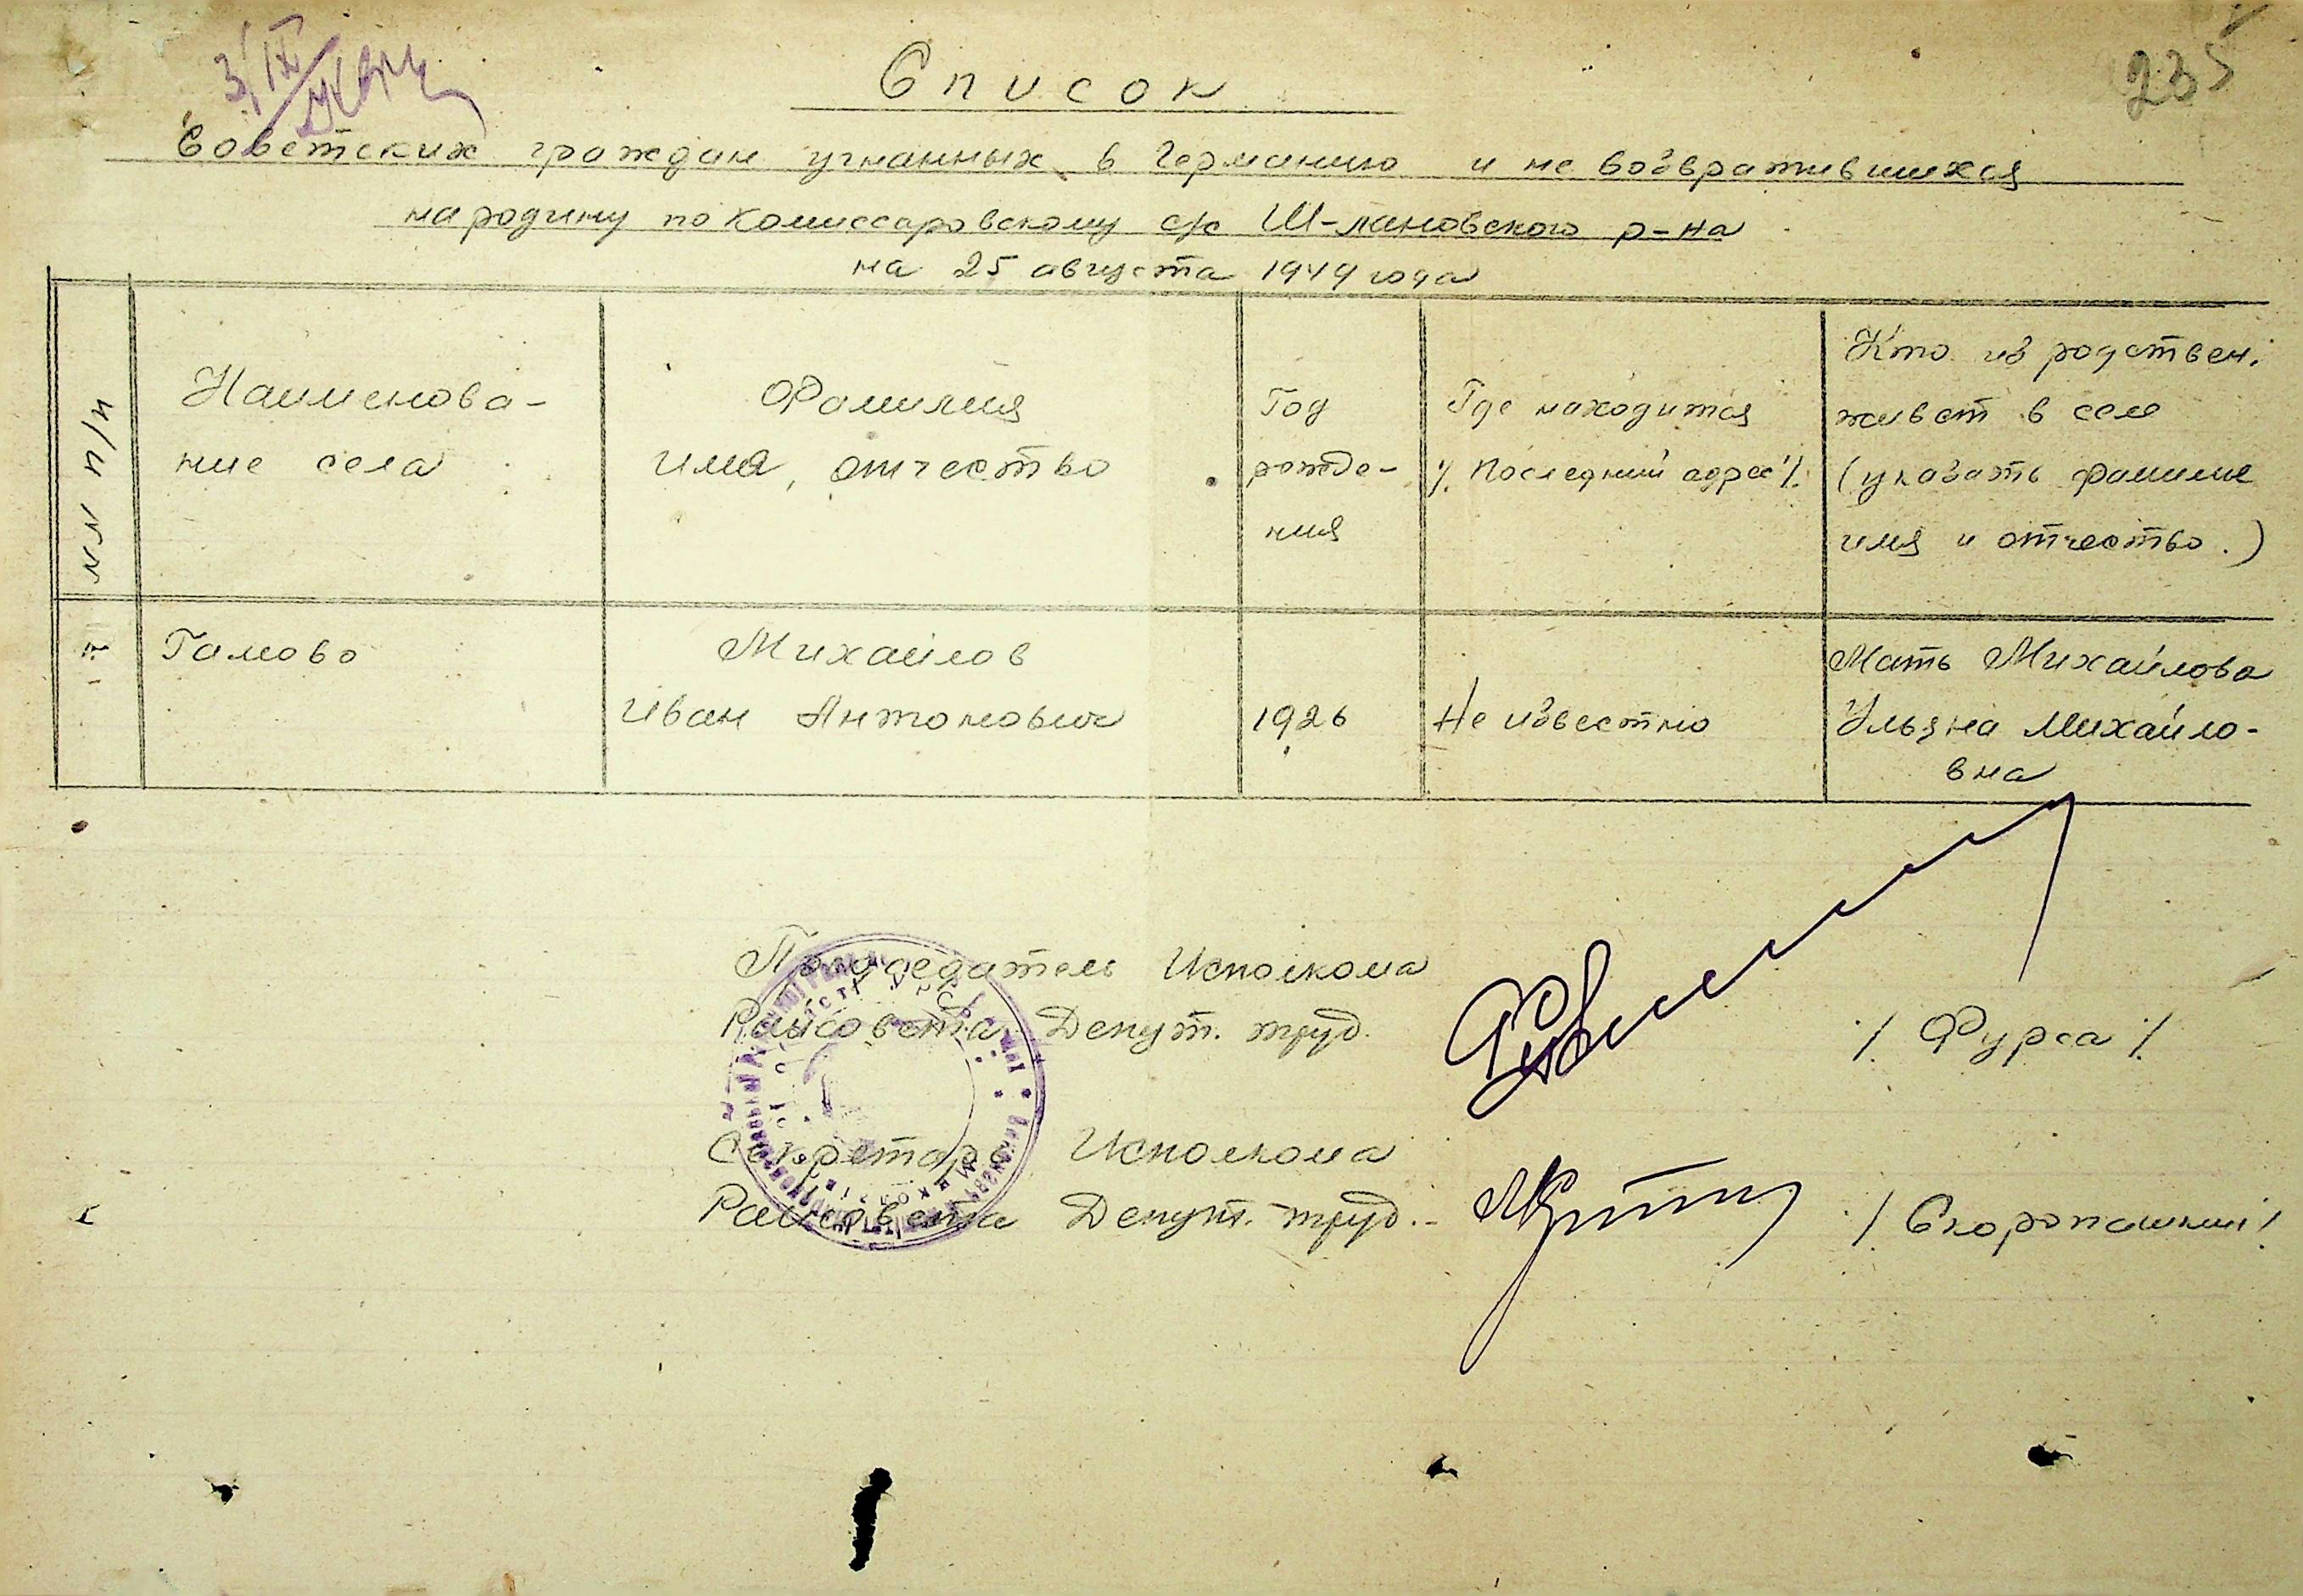 3/IX
235
Список
Советских граждан угнанных в Германию и не возвратившихся
на родину по Комиссаровскому с/с Ш-лановского р-на
на 25 августа 1949 года
NN п/п
Наименова-
ние села
Фамилия
имя, отчество
Год
рожде-
ния
Где находится
/. последний адрес /.
Кто из родствен.
живет в селе
(указать фамилие
имя и отчество.)
1.
Гамово
Михайлов
Иван Антонович
1926
Не известно
Мать Михайлова
Ульяна Михайло-
вна
Председатель Исполкома
Райсовета Депут. труд.
/. Фурса /.
Секретарь Исполкома
Райсовета Депут. труд. -
/. Скоропашкий /.